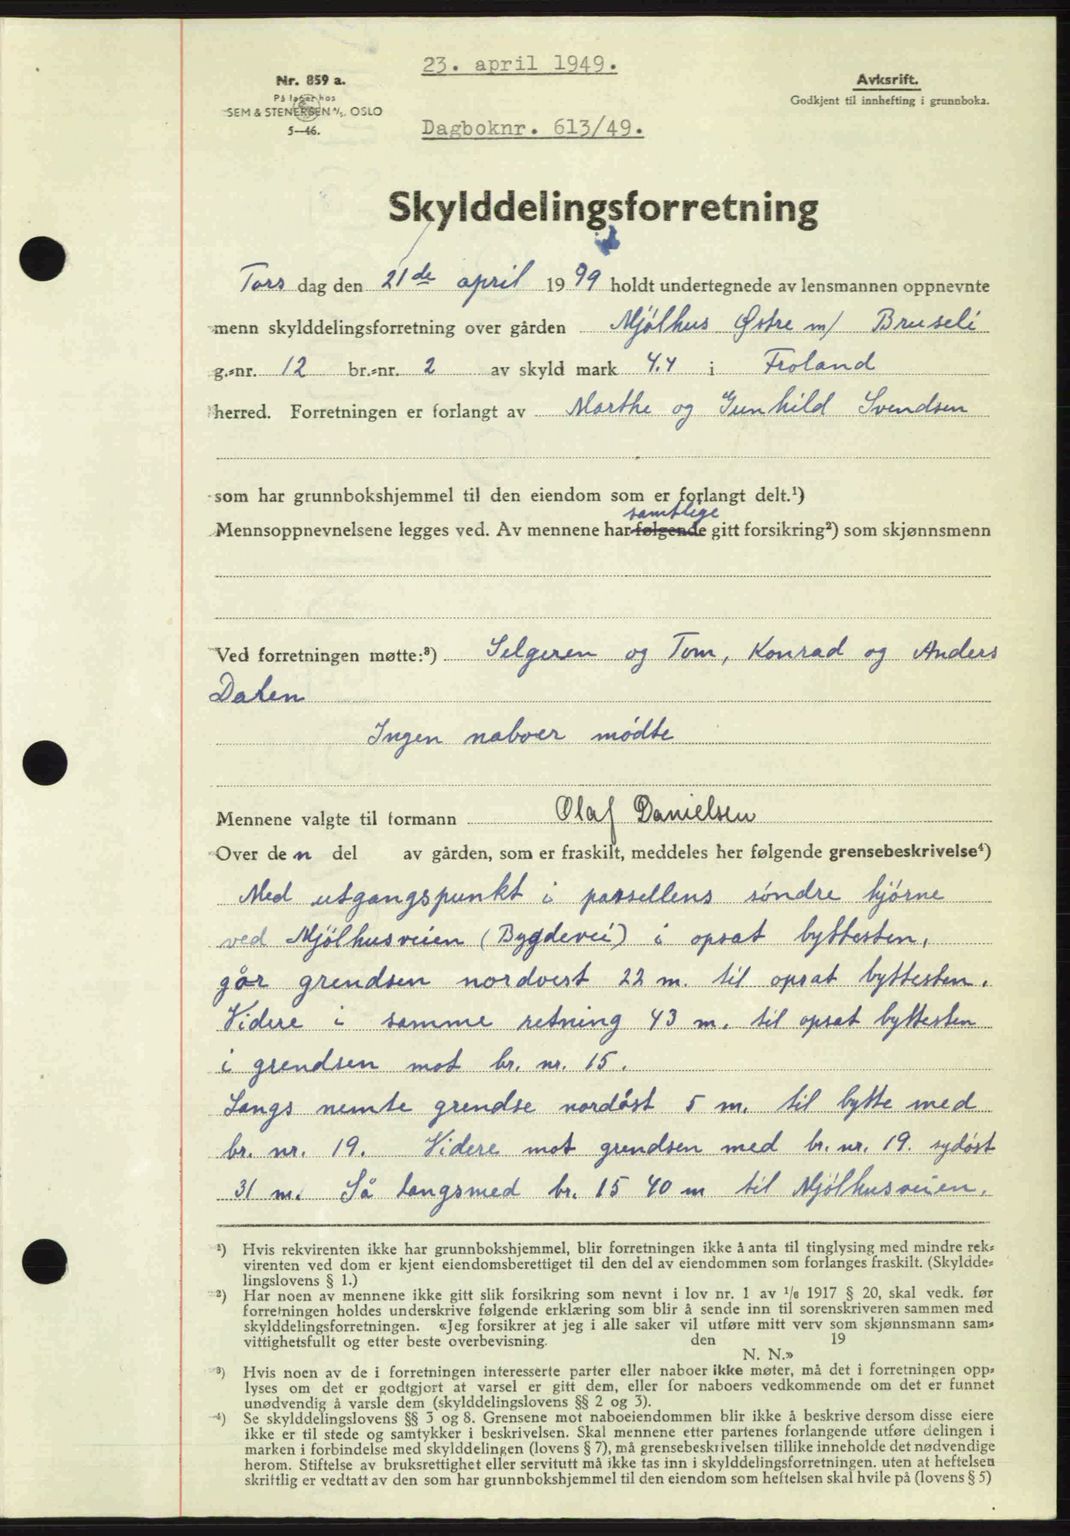 23. april 1949.
Nr. 859 a.
På lager hos
SEM & STENERSEN A/S. OSLO
5—46.
Avskrift.
Godkjent til innhefting i grunnboka.
Dagboknr. 613/49.
Skylddelingsforretning
Tors dag den 21de april 1949 holdt undertegnede av lensmannen oppnevnte
menn skylddelingsforretning over gården Mjölhus Østre m/ Bruseli
g.-nr. 12 br.-nr. 2 av skyld mark 4.4 i Froland
herred. Forretningen er forlangt av Marthe og Gunhild Svendsen
som har grunnbokshjemmel til den eiendom som er forlangt delt.¹)
samtlige
Mennsoppnevnelsene legges ved. Av mennene har følgende gitt forsikring²) som skjønnsmenn
Ved forretningen møtte:³) Selgeren og Tom, Konrad og Anders
Dalen
Ingen naboer mödte
Mennene valgte til formann Olaf Danielsen
Over den del av gården, som er fraskilt, meddeles her følgende grensebeskrivelse⁴)
Med utgangspunkt i parsellens söndre hjörne
ved Mjölhusveien (Bygdevei) i opsat byttesten,
går grendsen nordvest 22 m. til opsat byttesten.
Videre i samme retning 43 m. til opsat byttesten
i grendsen mot br. nr. 15.
Langs nemte grendse nordöst 5 m. til bytte med
br. nr. 19. Videre mot grendsen med br. nr. 19. sydöst
31 m. Så langsmed br. 15 40 m til Mjölhusveien.
¹) Hvis rekvirenten ikke har grunnbokshjemmel, blir forretningen ikke å anta til tinglysing med mindre rek-
virenten ved dom er kjent eiendomsberettiget til den del av eiendommen som forlanges fraskilt. (Skyldde-
lingslovens § 1.)
²) Har noen av mennene ikke gitt slik forsikring som nevnt i lov nr. 1 av 1/6 1917 § 20, skal vedk. før
forretningen holdes underskrive følgende erklæring som blir å sende inn til sorenskriveren sammen med
skylddelingsforretningen. «Jeg forsikrer at jeg i alle saker vil utføre mitt verv som skjønnsmann sam-
vittighetsfullt og etter beste overbevisning. den 19
N. N.»
³) Hvis noen av de i forretningen interesserte parter eller naboer ikke møter, må det i forretningen opp-
lyses om det er godtgjort at varsel er gitt dem, eller for naboers vedkommende om det er funnet
unødvendig å varsle dem (skylddelingslovens §§ 2 og 3).
⁴) Se skylddelingslovens §§ 3 og 8. Grensene mot naboeiendommen blir ikke å beskrive dersom disse eiere
ikke er til stede og samtykker i beskrivelsen. Skal mennene etter partenes forlangende utføre delingen i
marken i forbindelse med skylddelingen (lovens § 7), må grensebeskrivelsen tillike inneholde det nødvendige
herom. Stiftelse av bruksrettighet eller servitutt må ikke tas inn i skylddelingsforretningen. uten at heftelsen
skriftlig er vedtatt av den som har grunnbokshjemmel til den eiendom som heftelsen skal hvile på (lovens § 5)